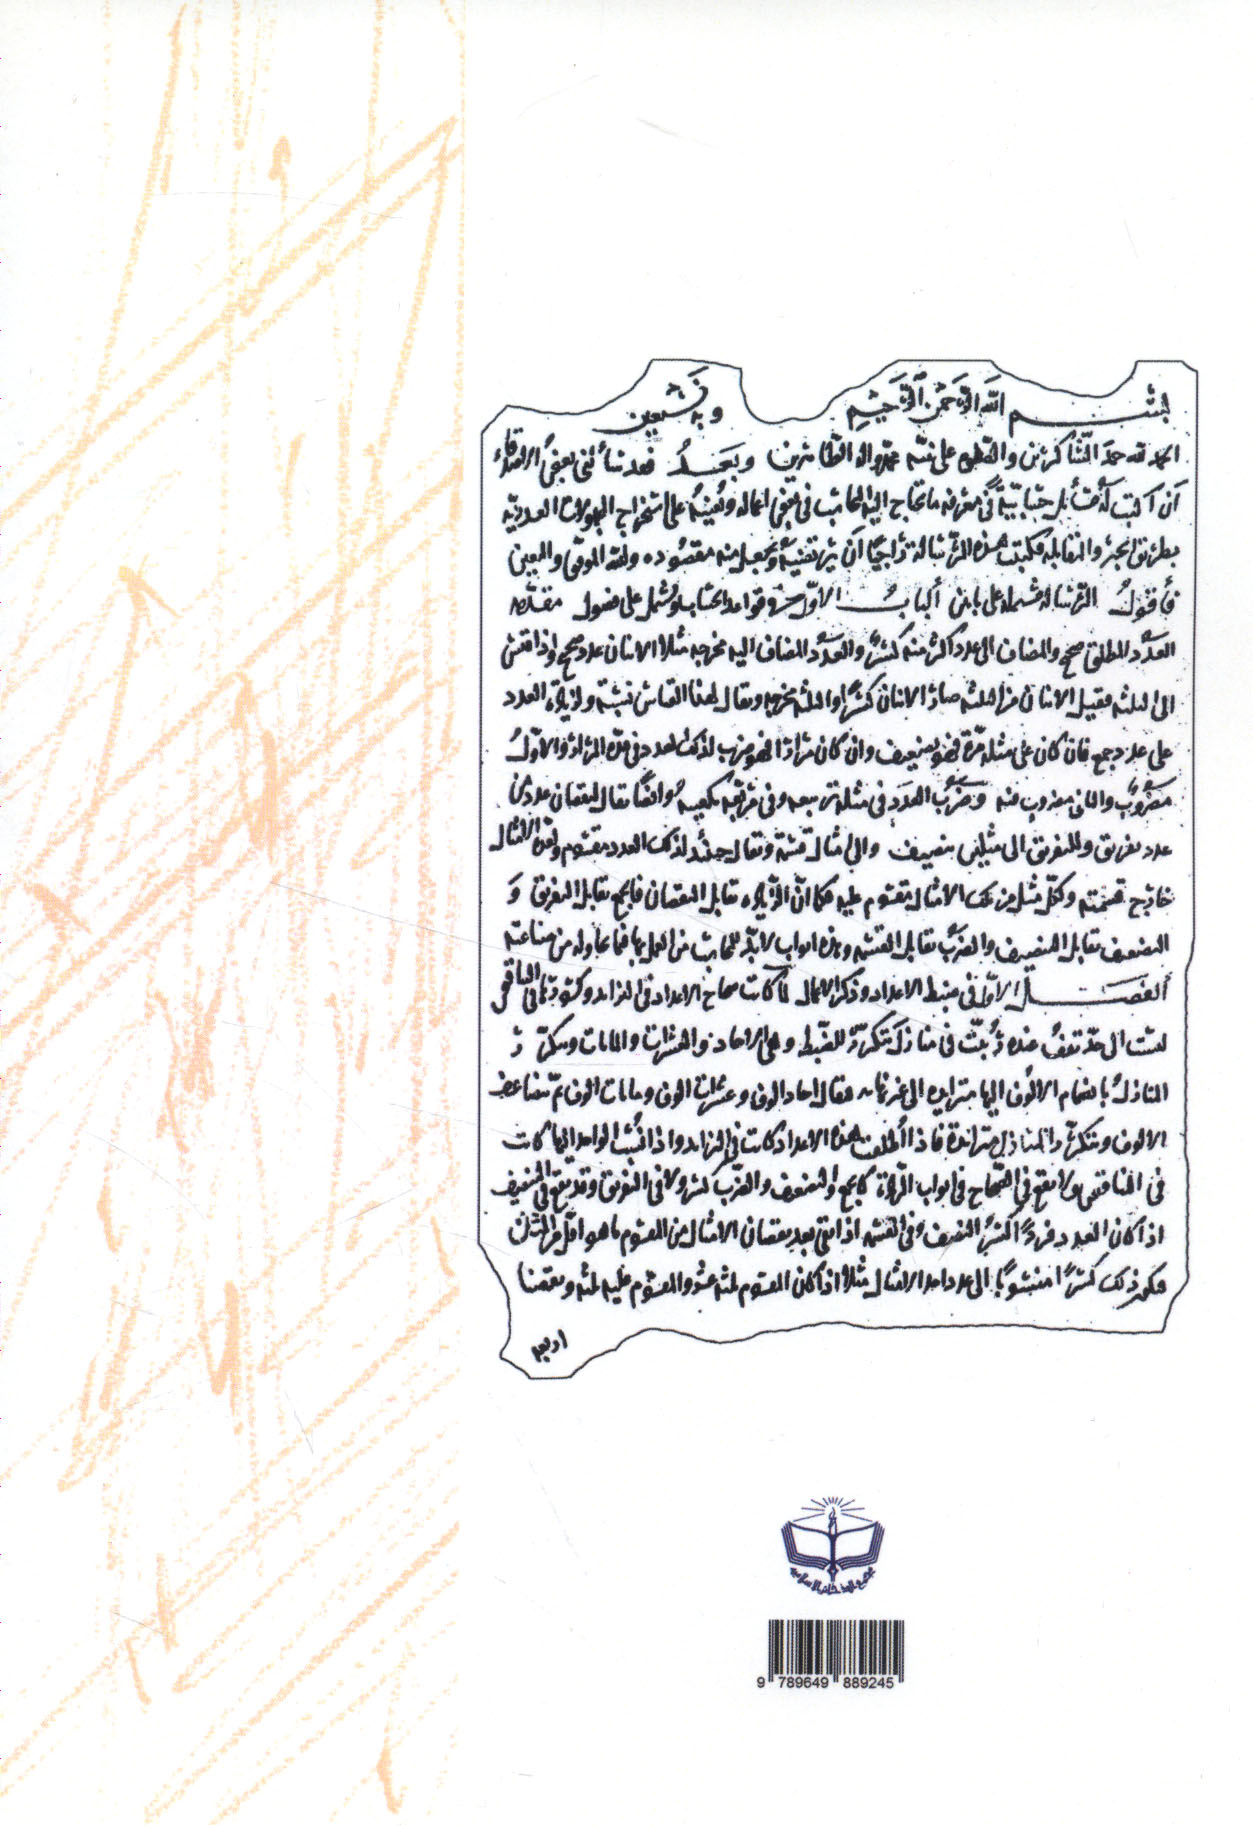 بسم الله الرحمن الرحيم وبه نستعين
الحمد لله حمد الشاكرين والصلوة على نبيه محمد واله الطاهرين وبعد فقد سألنى بعض الاصدقاء
ان اكتب له رسالة حسابية فى معرفة ما يحتاج اليه المحاسب فى بعض اعماله وتعينه على استخراج المجهولات العددية
بطريق الجبر والمقابلة فكتبت هذه الرسالة راجيا ان يرتضيه ويحصل منه مقصوده والله الموفق والمعين
فأقول الرسالة مشتملة على بابين الباب الاول فى قواعد الحساب ويشمل على فصول مقدمة
العدد المطلق صحيح والمضاف الى عدد اكثر منه كسر والعدد المضاف اليه مخرجه مثلا الاثنان عدد صحيح واذا قيس
الى الثلثة فقيل الاثنان من الثلثة صار الاثنان كسرا والثلثة مخرجه ويقال لهذا القياس نسبة ولزيادة العدد
على عدد جمع فان كان على مثله مرة فهو تضعيف وان كان مرارا فهو ضرب لذلك العدد فى عدة المرار والاول
مضروب والثانى مضروب فيه وضرب العدد فى مثله تربيعه وفى مربعه تكعيبه وايضا يقال لنقصان عدد من
عدد تفريق وللتفريق الى مثلين تنصيف والى امثال قسمة ويقال حينئذ لذلك العدد مقسوم ولعدة الامثال
خارج قسمته ولكل مثل من تلك الامثال مقسوم عليه فكما ان الزيادة تقابل النقصان فالجمع يقابل التفريق و
التضعيف يقابل التنصيف والضرب يقابل القسمة وهذه ابواب لابد للمحاسب من العمل بها فيما يحاوله من صناعته
الفصل الاول فى ضبط الاعداد وذكر الاعمال لما كانت صحاح الاعداد فى التزايد وكسورها فى التناقص
ليست الى حد تقف عنده رتبت فى منازل تتكرر للضبط وهى الاحاد والعشرات والمئات وتتكرر
المنازل بانضمام الالوف اليها متزايدة الى غير نهاية فيقال احاد الوف وعشرات الوف ومئات الوف ثم تتضاعف
الالوف وتتكرر المنازل متزايدة فاذا اطلقت هذه الاعداد كانت فى التزايد واذا نسب الواحد اليها كانت
فى التناقص ولا يقع فى الصحاح فى ابواب الزيادة كالجمع والتضعيف والضرب كسر ولا فى التفريق وقد يقع فى التنصيف
اذا كان العدد فردا كسر النصف وفى القسمة اذا بقى بعد نقصان الامثال من المقسوم ما هو اقل من المثل
فيكون ذلك كسرا منسوبا الى عدد احد الامثال مثلا اذا كان المقسوم ثلثة عشر والمقسوم عليه ثلثة ونقصنا
اربعة
مجمع الذخائر الاسلامية
9 789649 889245